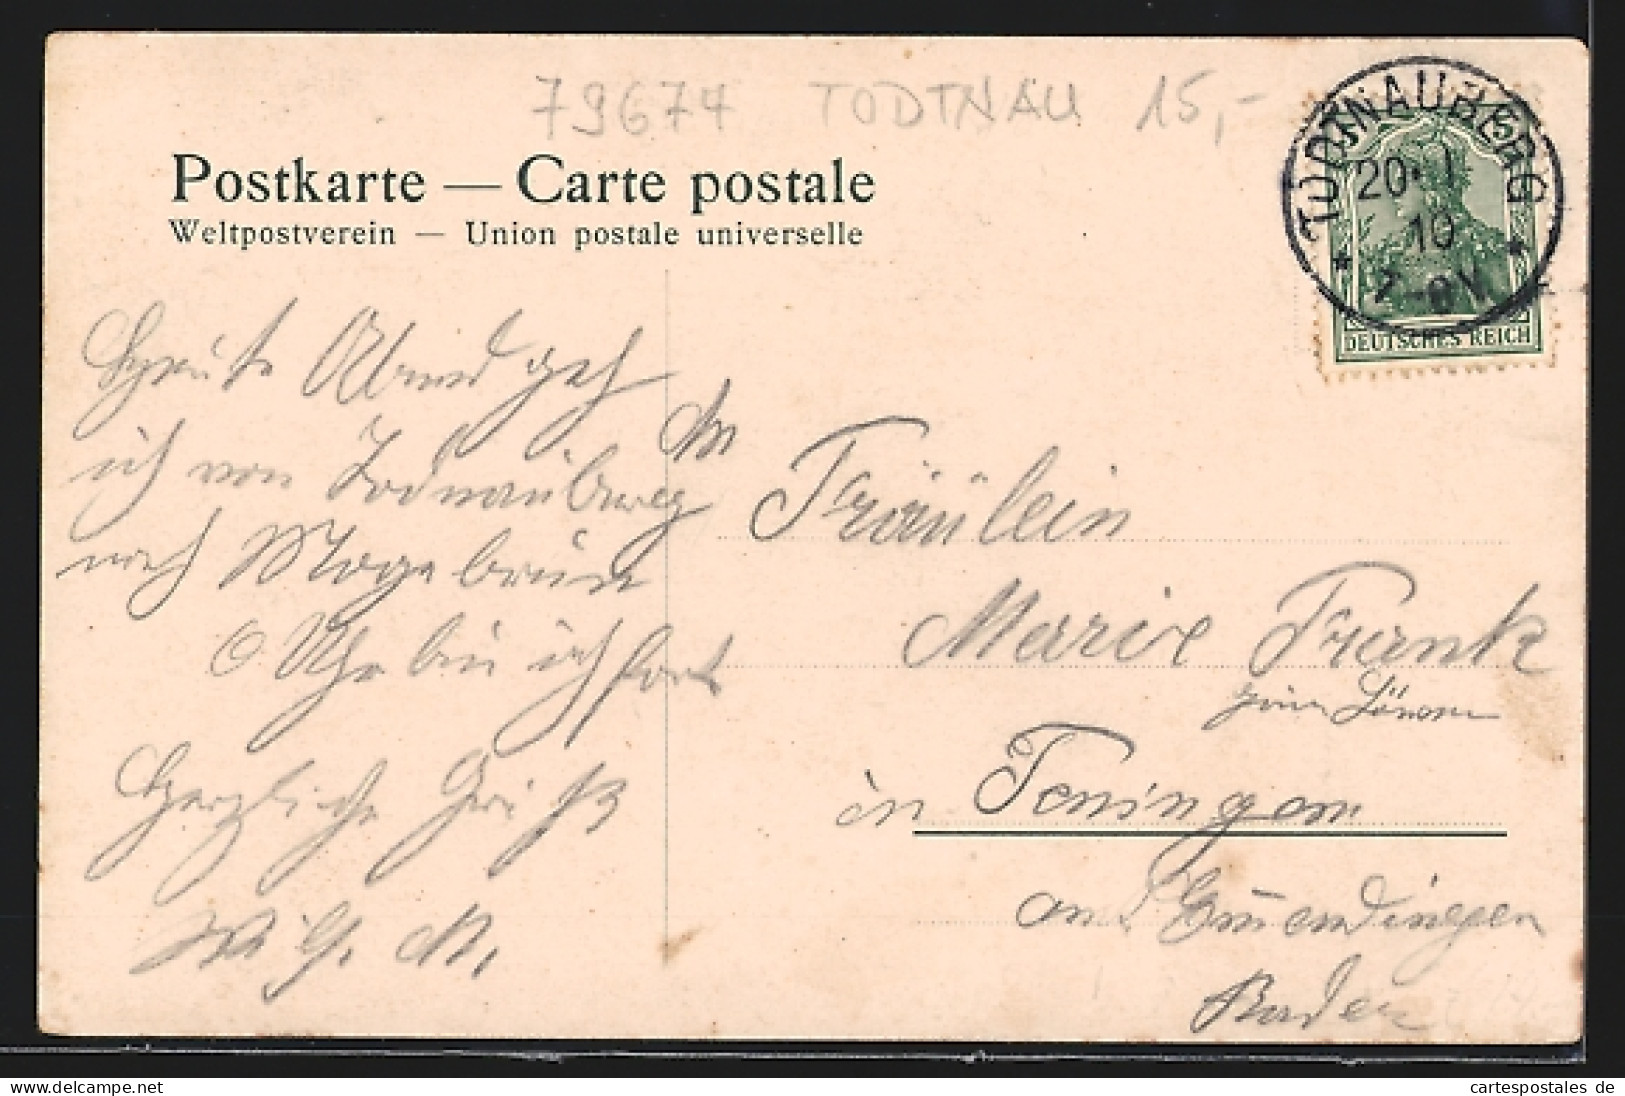 79674 TODTNAU 15,-
Postkarte — Carte postale
Weltpostverein — Union postale universelle
TODTNAUBERG
20. 1.
10
7-8V
DEUTSCHES REICH
Heute Abend geh
ich von Todnauberg
nach
6 Uhr bin ich fort
Herzliche Grüße
An
Fräulein
Marie Frank
zum Löwen
in Teningen
Emmendingen
Baden
cartespostales de